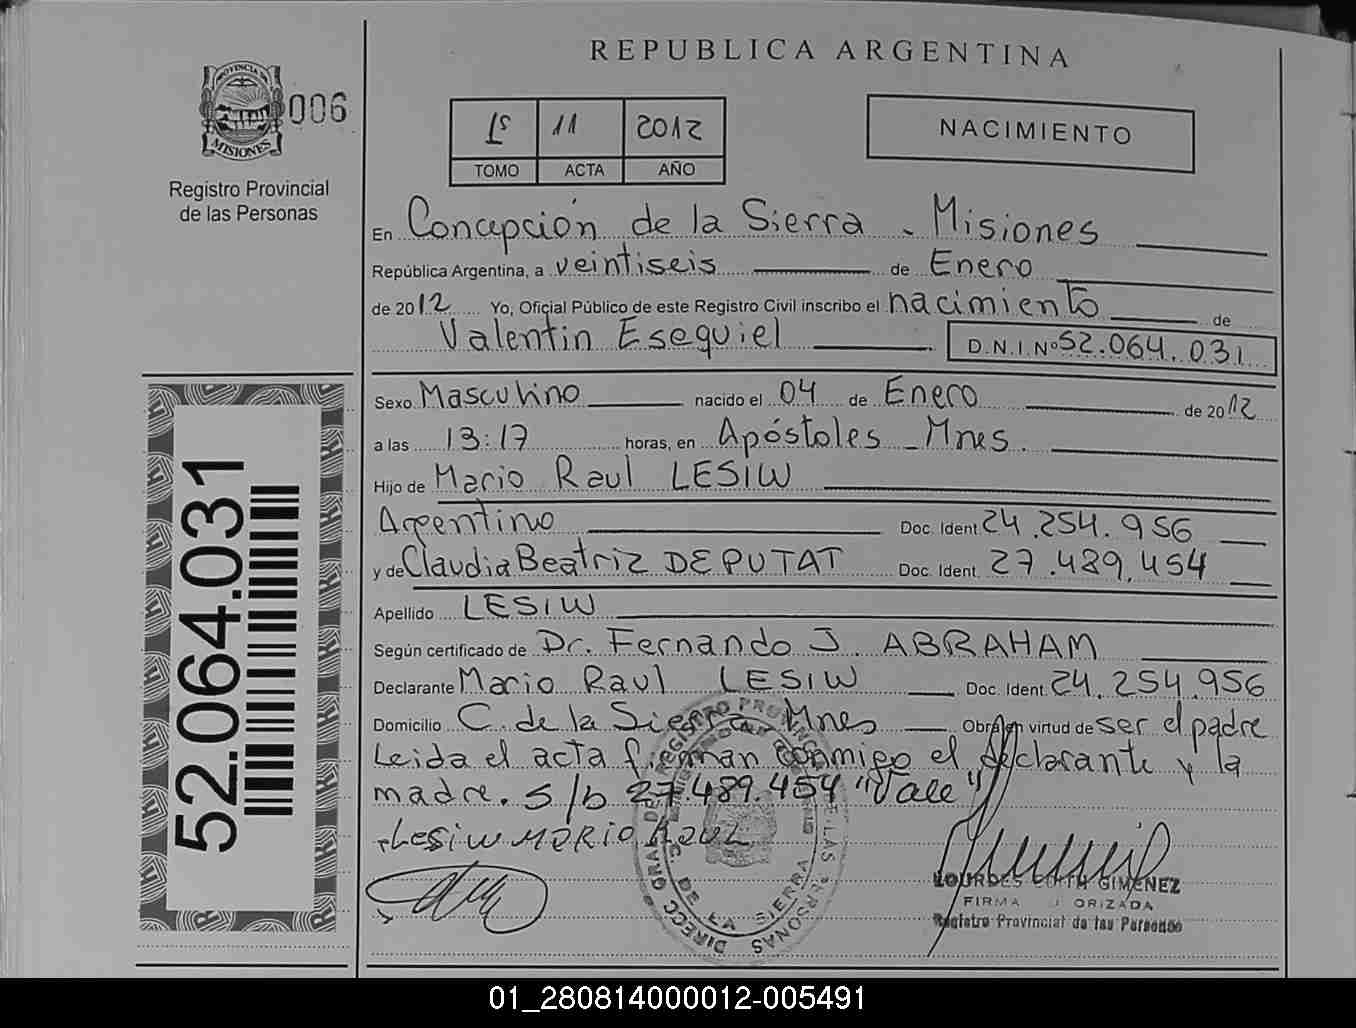 REPUBLICA ARGENTINA
PROVINCIA DE
MISIONES
006
Registro Provincial
de las Personas
1º 11 2012
TOMO ACTA AÑO
NACIMIENTO
En Concepción de la Sierra - Misiones
República Argentina, a veintiseis de Enero
de 2012 Yo, Oficial Público de este Registro Civil inscribo el nacimiento de
Valentin Esequiel D.N.I.Nº 52.064.031
Sexo Masculino nacido el 04 de Enero de 2012
a las 13:17 horas, en Apóstoles - Mnes.
Hijo de Mario Raul LESIW
Argentino Doc. Ident. 24.254.956
y de Claudia Beatriz DEPUTAT Doc. Ident. 27.489.454
Apellido LESIW
Según certificado de Dr. Fernando J. ABRAHAM
Declarante Mario Raul LESIW Doc. Ident. 24.254.956
Domicilio C. de la Sierra Mnes Obra en virtud de ser el padre
Leida el acta firman conmigo el declarante y la
madre. s/b 27.489.454 "Vale"
Lesiw MARIO RAUL
LOURDES EDITH GIMENEZ
FIRMA AUTORIZADA
Registro Provincial de las Personas
DIRECC. GRAL. DE REGISTRO PROVINCIAL DE LAS PERSONAS
DE LA SIERRA
52.064.031
01_280814000012-005491